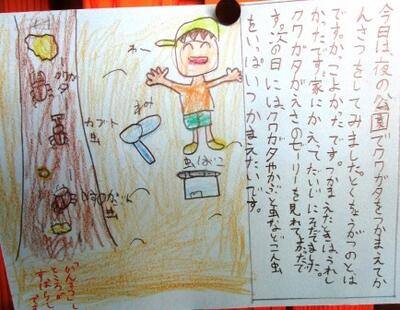 今日は夜の公園でクワガタをつかまえてか
んさつをしてみました。とくちょうがつのとは
です。かっこよかったです。つかまえたときはうれし
かったです。家にかえってたいじにそだてました。
クワガタがえさのゼーリーを見れてよかたで
す。次の日にはクワガタやかぶと虫などこん虫
をいっぱいつかまえたいです。
わー
クワガタ
カブト虫
あみ
虫ばこ